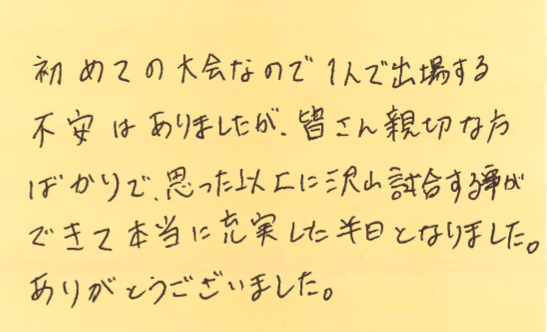 初めての大会なので1人で出場する
不安はありましたが、皆さん親切な方
ばかりで、思った以上に沢山試合する事が
できて本当に充実した半日となりました。
ありがとうございました。